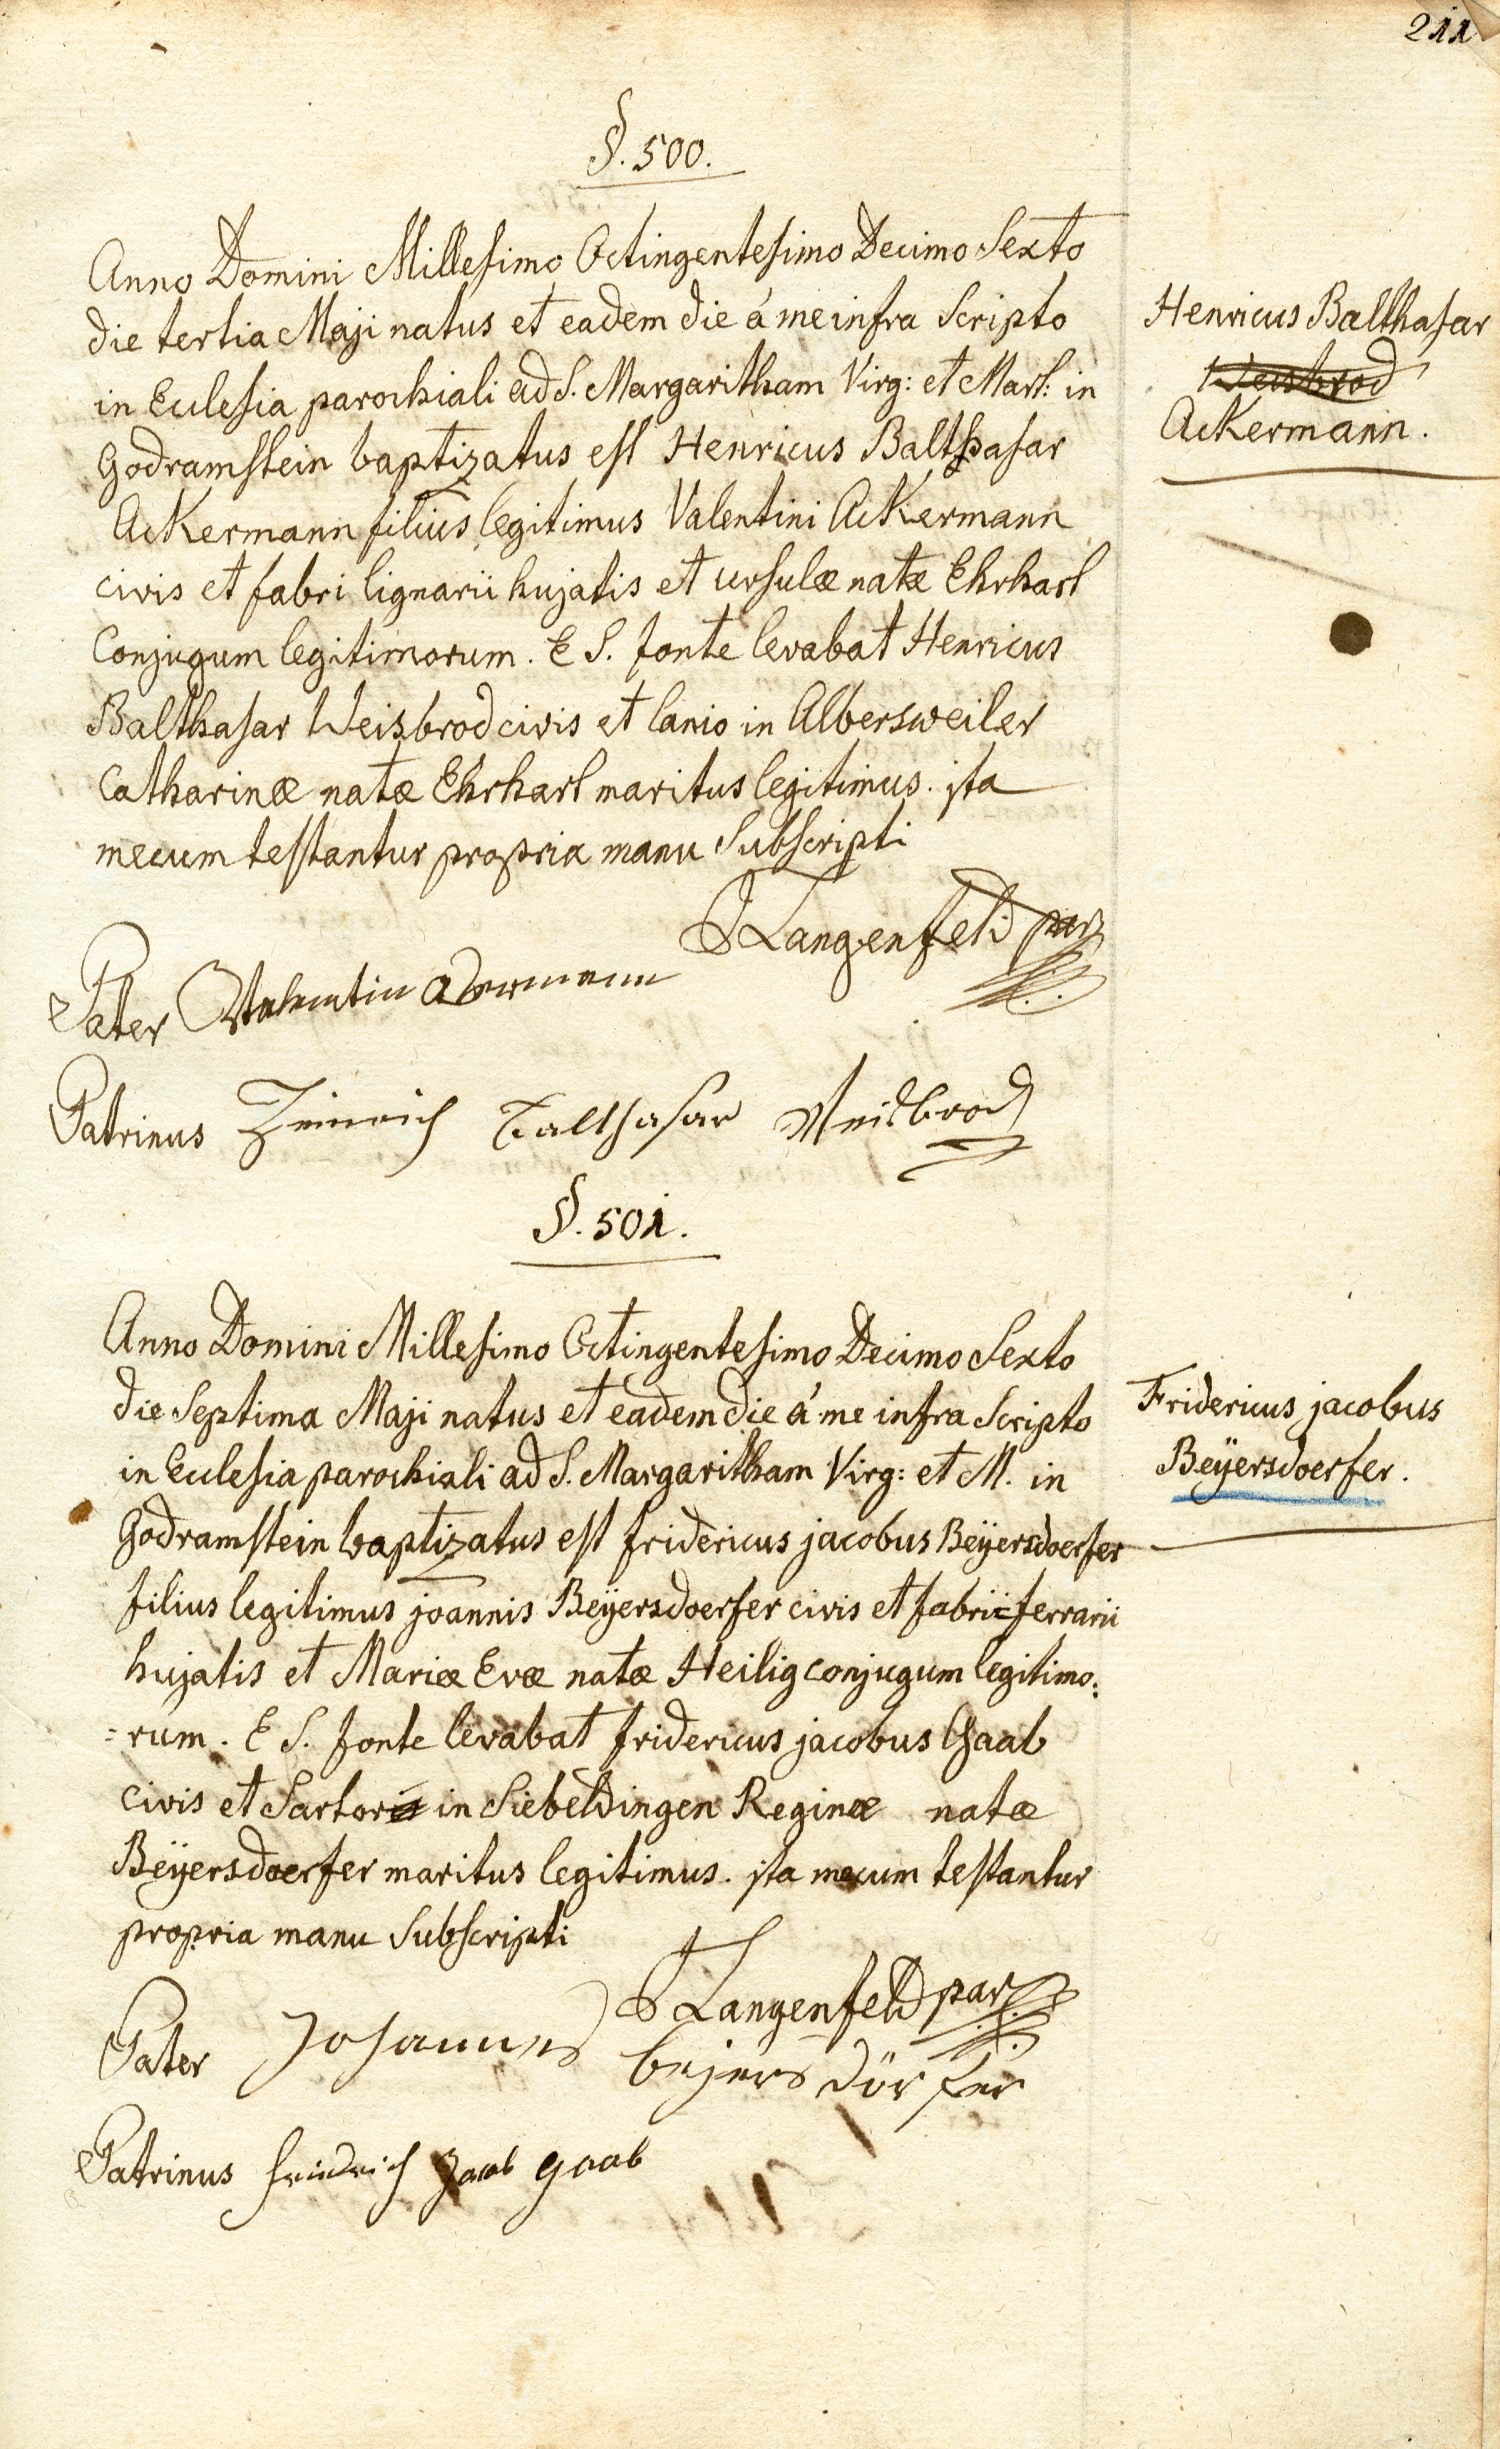 211
§. 500.
Anno Domini Millesimo Octingentesimo Decimo Sexto
die tertia Maji natus et eadem die á me infra Scripto
in Ecclesia parochiali ad S. Margaritham Virg: et Mart: in
Godramstein baptizatus est Henricus Balthasar
Ackermann filius legitimus Valentini Ackermann
civis et fabri lignarii hujatis et ursulæ natæ Ehrhart
Conjugum legitimorum. E S. fonte levabat Henricus
Balthasar Weisbrod civis et lanio in Albersweiler
Catharinæ natæ Ehrhart maritus legitimus. ita
mecum testantur propria manu Subscripti
Henricus Balthasar
Weisbrod
Ackermann.
J Langenfeld par
Pater Valentin Ackermann
Patrinus Heinrich Balthasar Weisbrod
§. 501.
Anno Domini Millesimo Octingentesimo Decimo Sexto
die Septima Maji natus et eadem die á me infra Scripto
in Ecclesia parochiali ad S. Margaritham Virg: et M. in
Godramstein baptizatus est fridericus jacobus Beÿersdoerfer
filius legitimus joannis Beÿersdoerfer civis et fabri ferrarii
hujatis et Mariæ Evæ natæ Heilig conjugum legitimo:
=rum. E S. fonte levabat fridericus jacobus Gaab
civis et Sartor in Siebeldingen Reginæ natæ
Beÿersdoerfer maritus legitimus. ita mecum testantur
propria manu Subscripti
Fridericus jacobus
Beÿersdoerfer.
J Langenfeld par
Pater Johannes bejers dörfer
Patrinus friedrich Jacob gaab